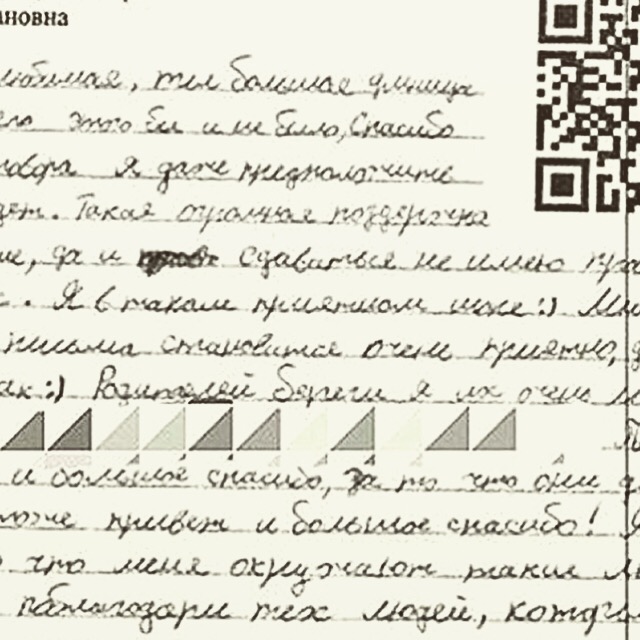 ановна
любимая, ты большая умница
этого бы и не было, Спасибо
говора я даже предположить
дет. Такая огромная поддержка
е, да и сдаваться не имею
. Я в таком приятном шоке:)
письма становится очень приятно,
ак:) Родителей береги я их очень
и большое спасибо, за то что они
тоже привет и большое спасибо!
что меня окружают такие
поблагодари тех людей,